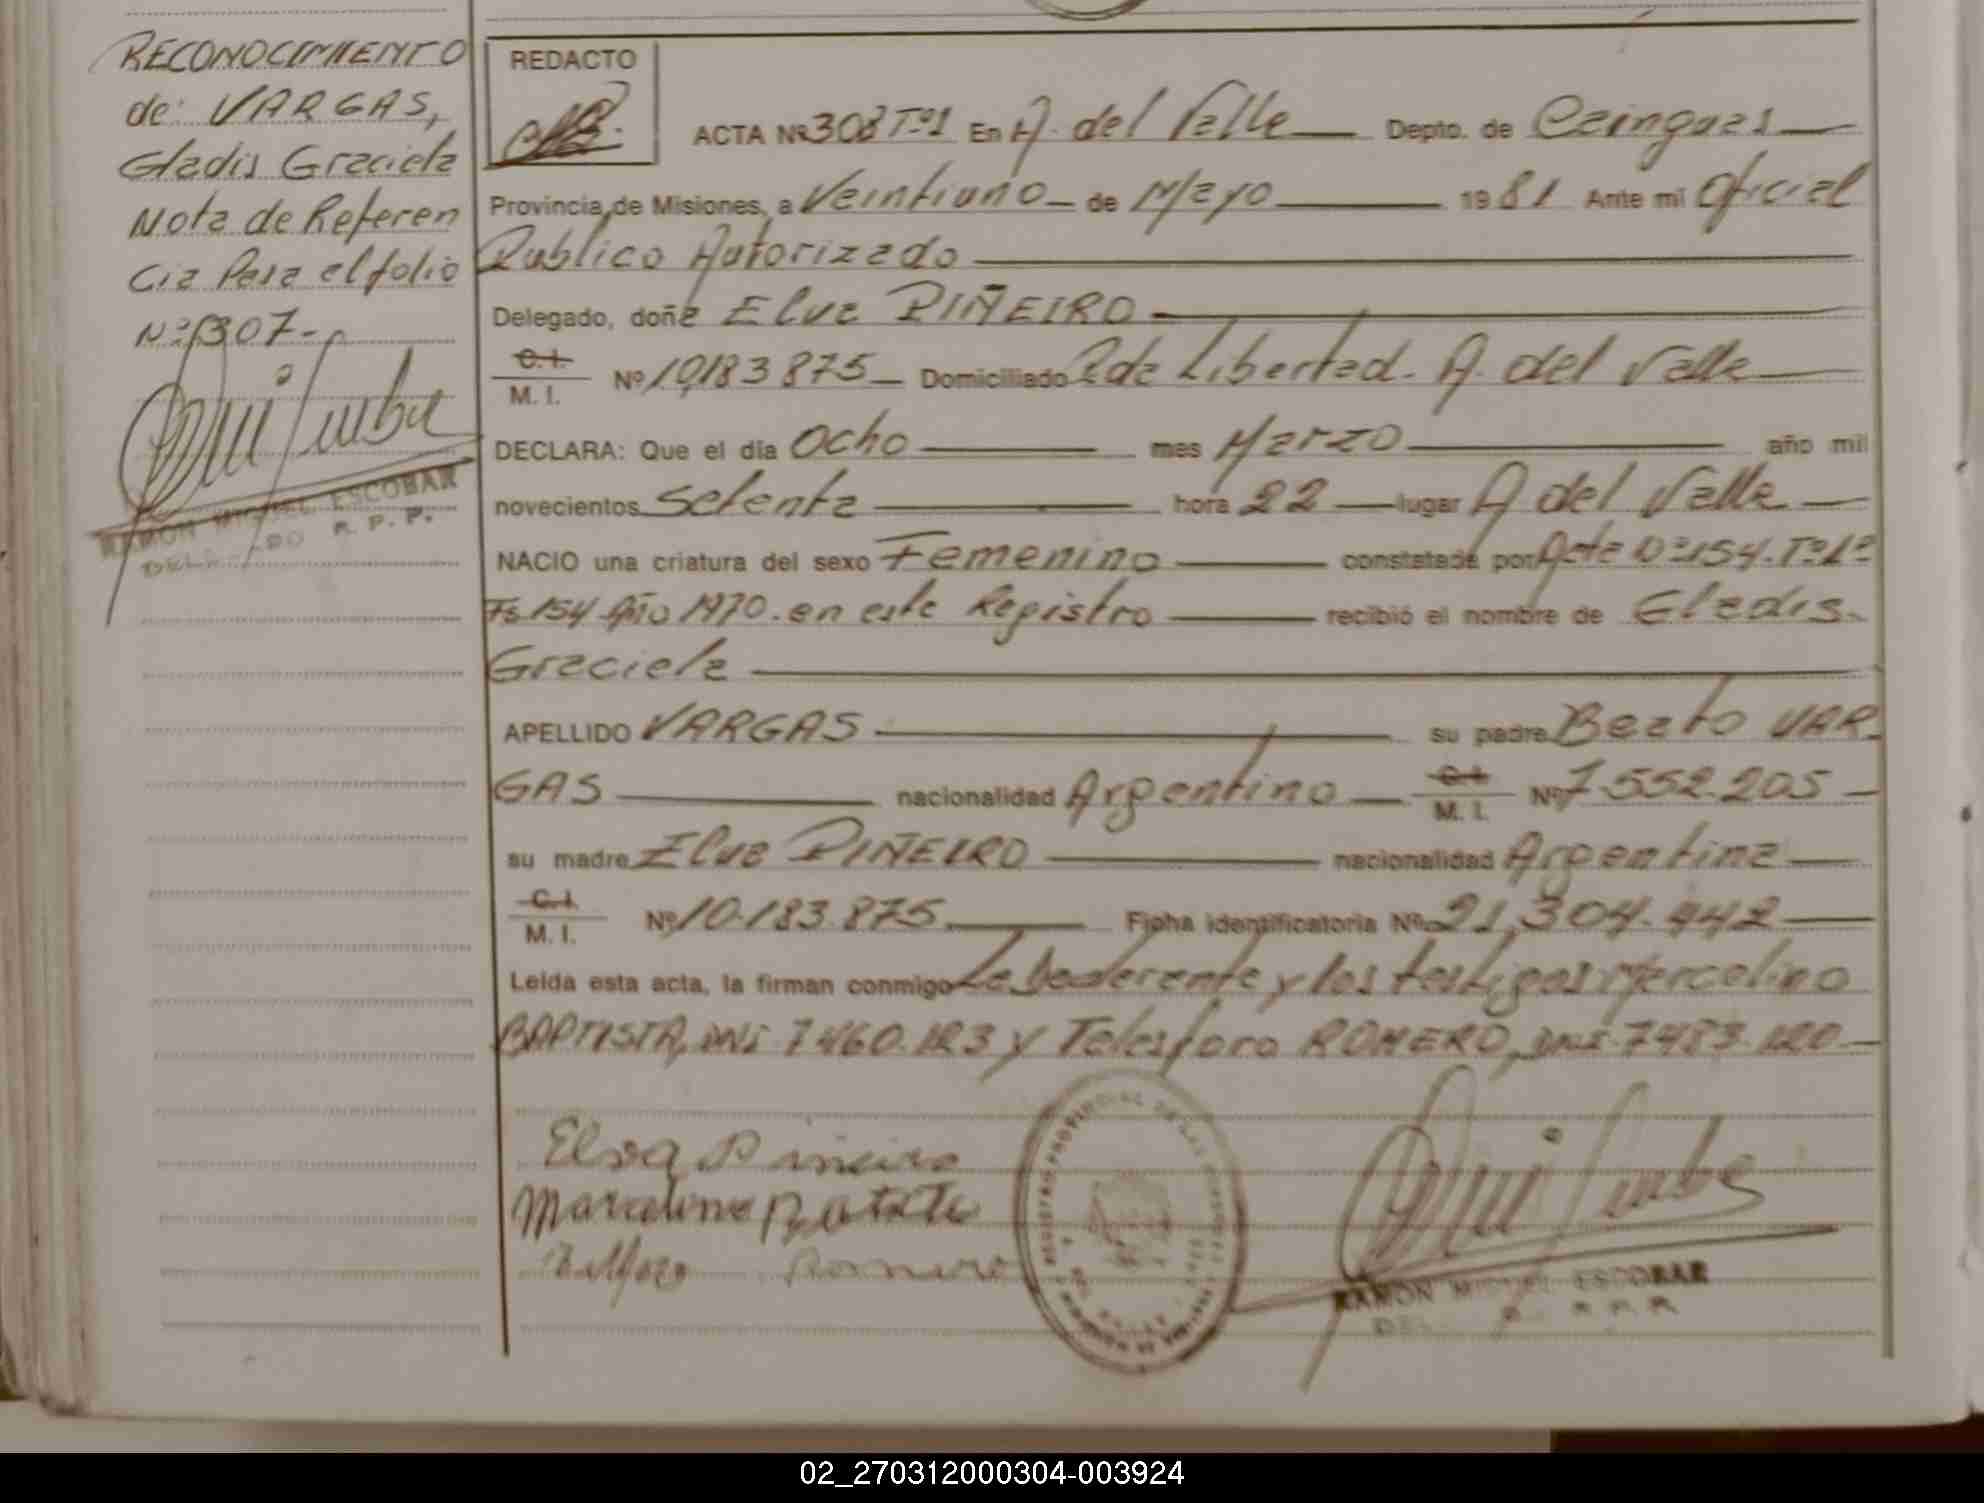 RECONOCIMIENTO
de: VARGAS,
Gladis Graciela
Nota de Referen
cia Pasa el folio
Nº 307-
RAMON MIGUEL ESCOBAR
R. P. P.
REDACTO
ACTA Nº 308 Tº1 En A. del Valle Depto. de Cainguas
Provincia de Misiones, a Veintiuno de Mayo 1981 Ante mi Oficial
Publico Autorizado
Delegado, doña Elva PIÑEIRO
C.I.
M. I. Nº 10183875 Domiciliado Pda Libertad. A. del Valle
DECLARA: Que el día Ocho mes Marzo año mil
novecientos Setenta hora 22 lugar A del Valle
NACIO una criatura del sexo Femenino constatada por Acta Nº 154. Tº1º
Fº.154 Año 1970. en este Registro recibió el nombre de Gladis
Graciela
APELLIDO VARGAS su padre Beato VAR
GAS nacionalidad Argentino C.I. M. I. Nº 7.552.205
su madre Elva PIÑEIRO nacionalidad Argentina
C.I.
M. I. Nº 10.183.875 Ficha identificatoria Nº 21,304.442
Leída esta acta, la firman conmigo La Declarente y los testigos Marcelino
BAPTISTA, DNI 7460.123 y Telesforo ROMERO, DNI 7483.120
Elva Piñeiro
RAMON MIGUEL ESCOBAR
02_270312000304-003924